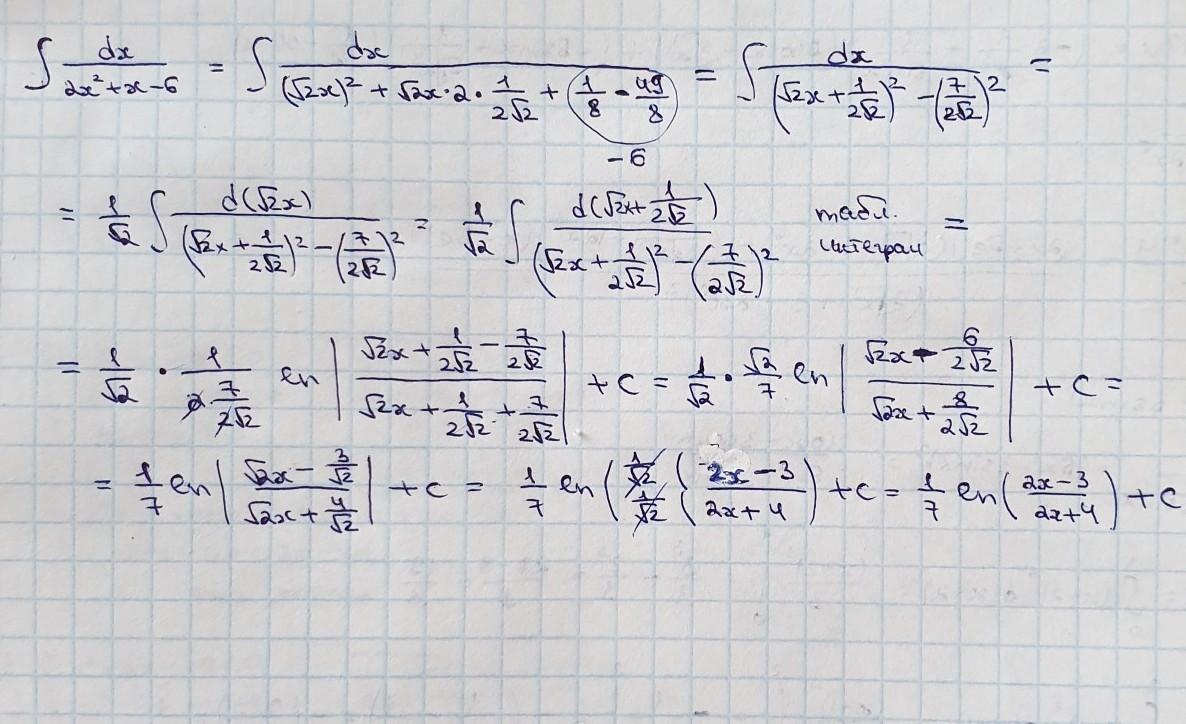 ∫ dx/(2x²+x-6) = ∫ dx/((√2x)² + √2x·2·1/(2√2) + 1/8 - 49/8) = ∫ dx/((√2x + 1/(2√2))² - (7/(2√2))²) =
-6
= 1/√2 ∫ d(√2x)/((√2x + 1/(2√2))² - (7/(2√2))²) = 1/√2 ∫ d(√2x + 1/(2√2))/((√2x + 1/(2√2))² - (7/(2√2))²) табл. интеграл =
= 1/√2 · 1/(2·7/(2√2)) ln |(√2x + 1/(2√2) - 7/(2√2))/(√2x + 1/(2√2) + 7/(2√2))| + c = 1/√2 · √2/7 ln |(√2x - 6/(2√2))/(√2x + 8/(2√2))| + c =
= 1/7 ln |(√2x - 3/√2)/(√2x + 4/√2)| + c = 1/7 ln ((1/√2)/(1/√2) ((2x-3)/(2x+4)) + c = 1/7 ln ((2x-3)/(2x+4)) + c